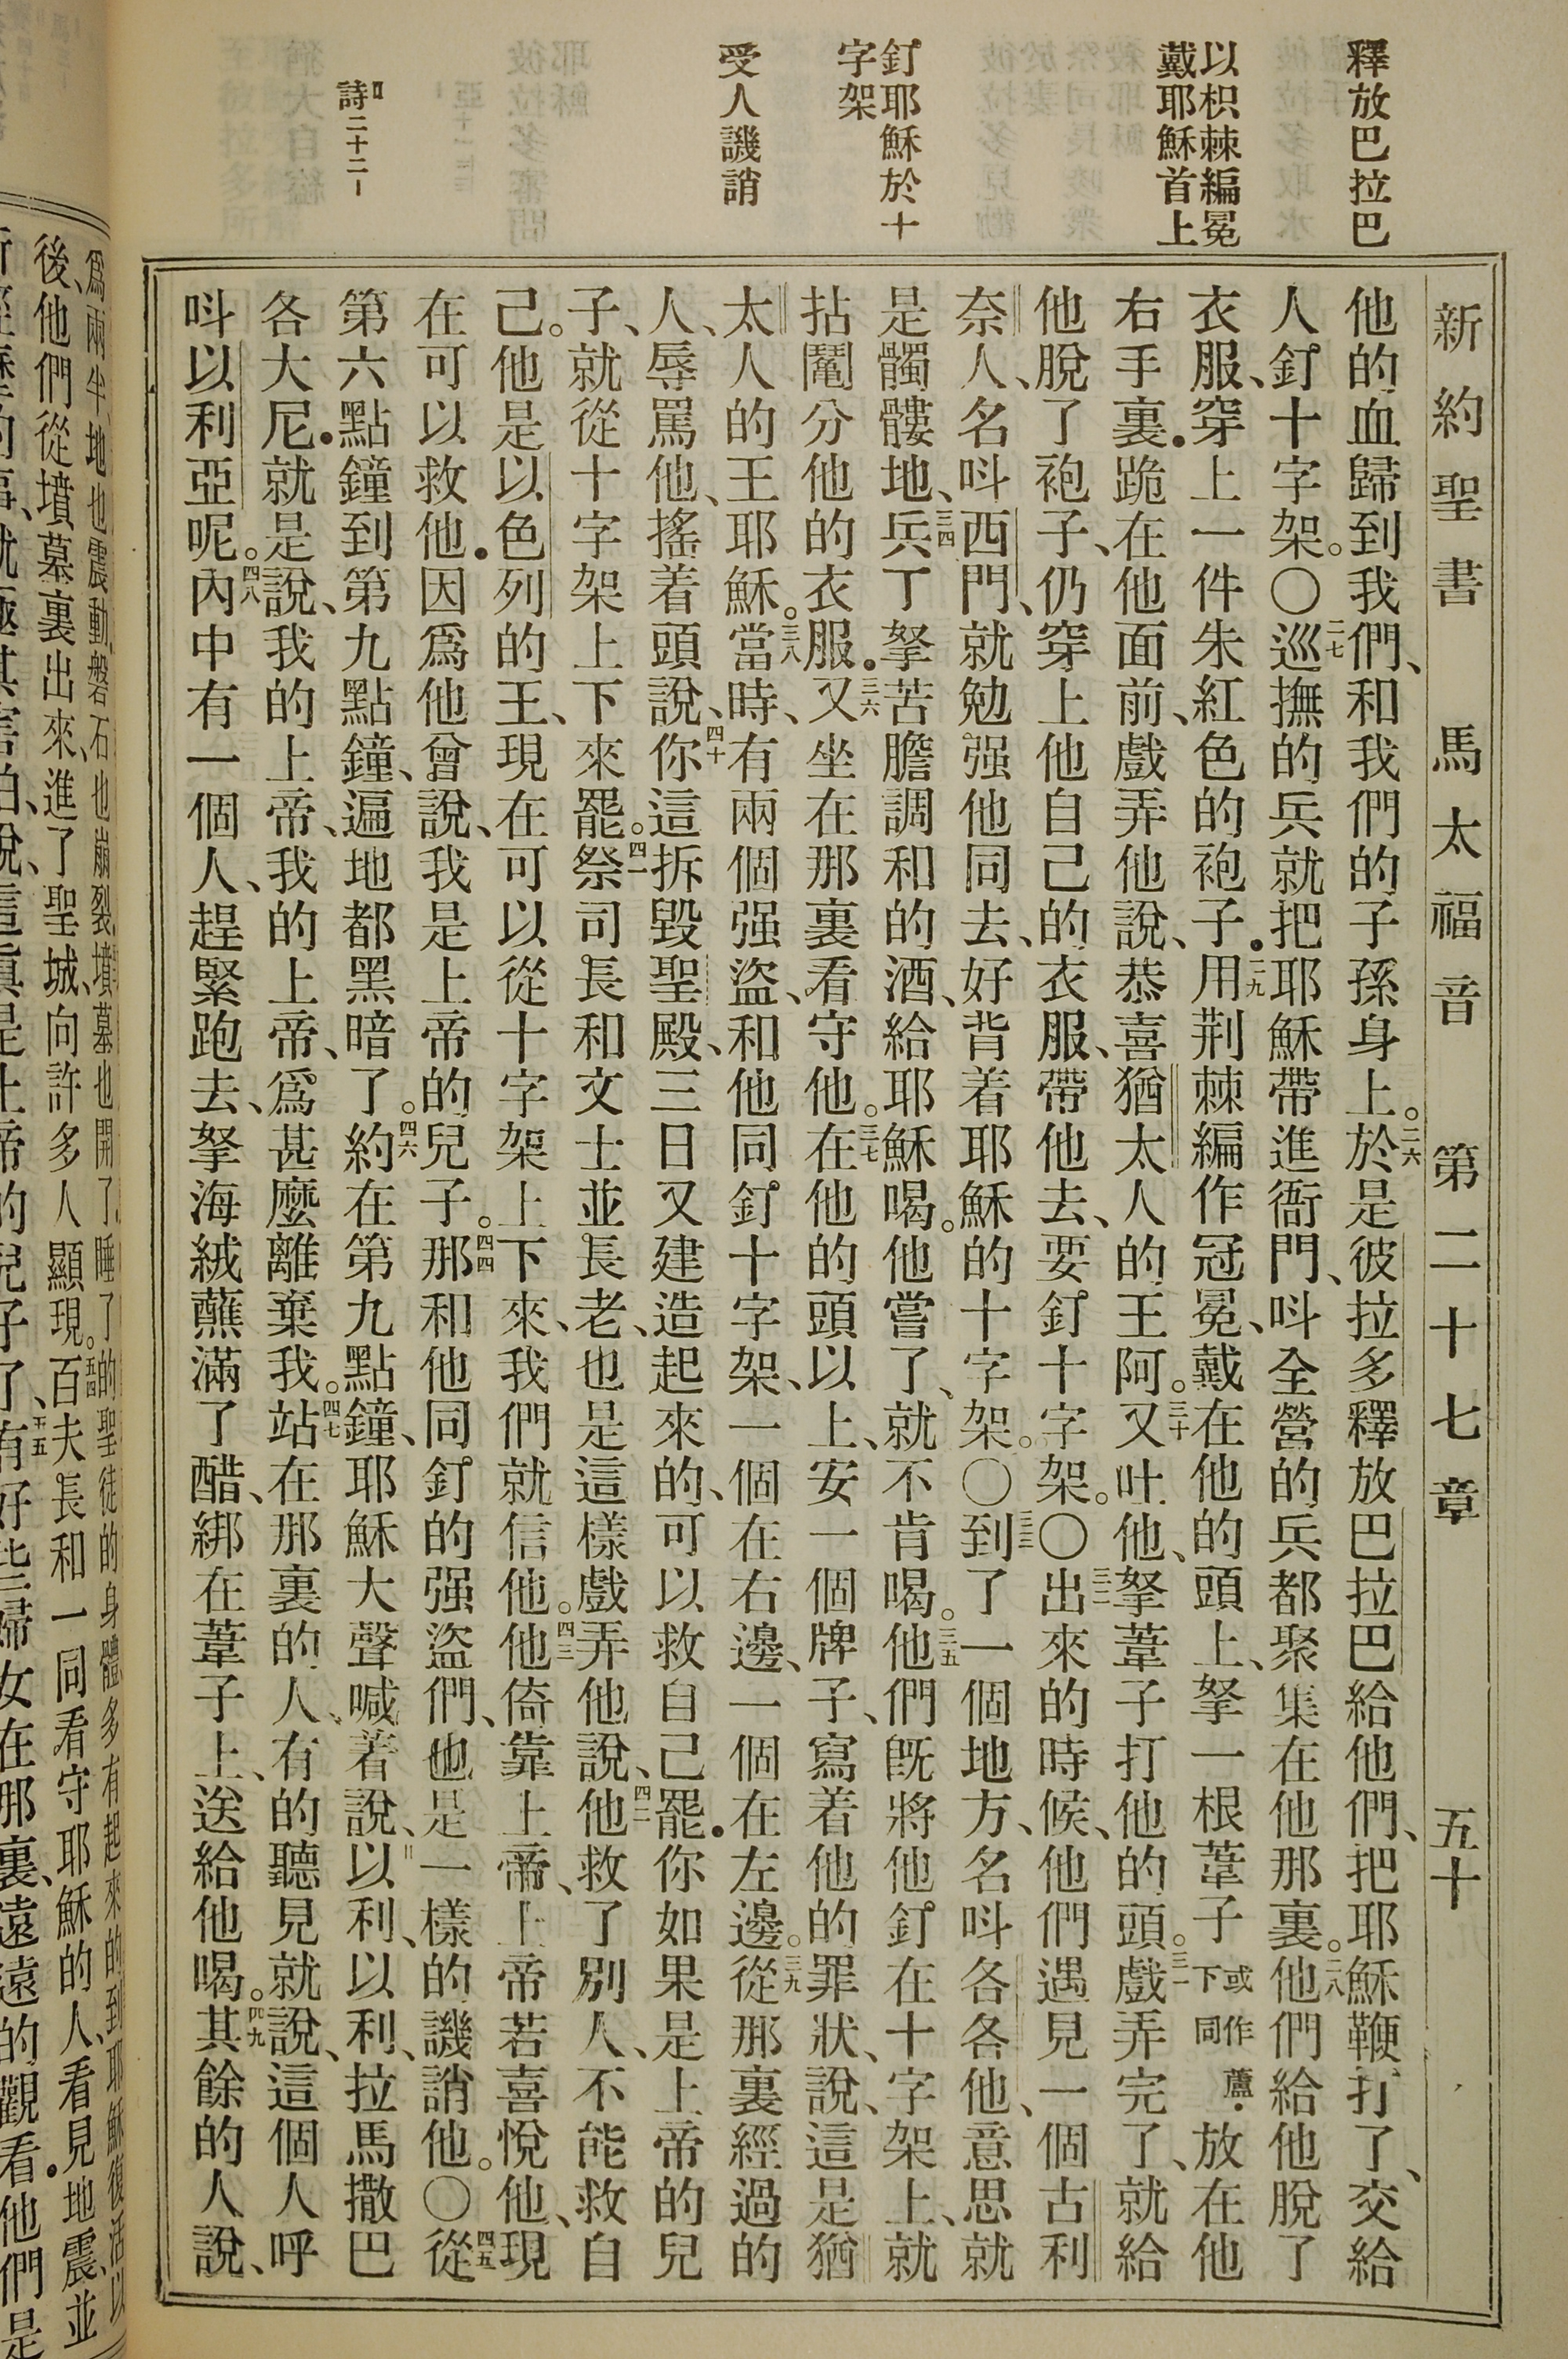 新約聖書 馬太福音 第二十七章 五十
釋放巴拉巴
以枳棘編冕
戴耶穌首上
釘耶穌於十
字架
受人譏誚
詩二十二
他的血歸到我們、和我們的子孫身上。二六於是彼拉多釋放巴拉巴給他們、把耶穌鞭打了、交給
人釘十字架。〇二七巡撫的兵就把耶穌帶進衙門、呌全營的兵都聚集在他那裏。二八他們給他脫了
衣服、穿上一件朱紅色的袍子.二九用荆棘編作冠冕、戴在他的頭上、拏一根葦子或作蘆.下同放在他
右手裏.跪在他面前、戲弄他說、恭喜猶太人的王阿。三十又吐他、拏葦子打他的頭。三一戲弄完了、就給
他脫了袍子、仍穿上他自己的衣服、帶他去、要釘十字架。〇三二出來的時候、他們遇見一個古利
奈人、名呌西門、就勉强他同去、好背着耶穌的十字架。〇三三到了一個地方、名呌各各他、意思就
是髑髏地、三四兵丁拏苦膽調和的酒、給耶穌喝。他嘗了、就不肯喝。三五他們旣將他釘在十字架上、就
拈鬮分他的衣服.三六又坐在那裏看守他。三七在他的頭以上、安一個牌子、寫着他的罪狀、說、這是猶
太人的王耶穌。三八當時、有兩個强盜、和他同釘十字架、一個在右邊、一個在左邊。三九從那裏經過的
人、辱罵他、搖着頭說、四十你這拆毀聖殿、三日又建造起來的、可以救自己罷.你如果是上帝的兒
子、就從十字架上下來罷。四一祭司長和文士並長老、也是這樣戲弄他說、四二他救了別人、不能救自
己。他是以色列的王、現在可以從十字架上下來、我們就信他。四三他倚靠上帝、上帝若喜悅他、現
在可以救他.因爲他曾說、我是上帝的兒子。四四那和他同釘的强盜們、也是一樣的譏誚他。〇四五從
第六點鐘到第九點鐘、遍地都黑暗了。四六約在第九點鐘、耶穌大聲喊着說、以利、以利、拉馬撒巴
各大尼.就是說、我的上帝、我的上帝、爲甚麼離棄我。四七站在那裏的人、有的聽見就說、這個人呼
呌以利亞呢。四八內中有一個人、趕緊跑去、拏海絨蘸滿了醋、綁在葦子上、送給他喝。四九其餘的人說、
爲兩半.地也震動.磐石也崩裂.墳墓也開了.睡了的聖徒的身體多有起來的.到耶穌復活以
後、他們從墳墓裏出來、進了聖城、向許多人顯現。百夫長和一同看守耶穌的人、看見地震、並
害怕、說、這眞是上帝的兒子了、五五有好些婦女在那裏、遠遠的觀看.他們是